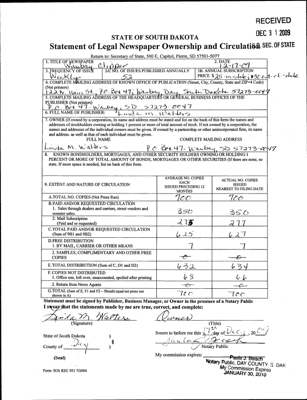 RECEIVED
DEC 31 2009
SEC. OF STATE
STATE OF SOUTH DAKOTA
Statement of Legal Newspaper Ownership and Circulation
Return to: Secretary of State, 500 E. Capitol, Pierre, SD 57501-5077
1. TITLE OF NEWSPAPER
Waubay Clipper
2. DATE
12-17-09
3. FREQUENCY OF ISSUE
Weekly
3A. NO. OF ISSUES PUBLISHED ANNUALLY
52
3B. ANNUAL SUBSCRIPTION PRICE
4. COMPLETE MAILING ADDRESS OF KNOWN OFFICE OF PUBLICATION (Street, City, County, State and ZIP+4 Code) (Not printers)
5. COMPLETE MAILING ADDRESS OF THE HEADQUARTERS OR GENERAL BUSINESS OFFICES OF THE PUBLISHER (Not printers)
P.O. Box 47, Waubay, SD 57273-0047
6. FULL NAME OF PUBLISHER:
Linda M. Walters
7. OWNER (If owned by a corporation, its name and address must be stated and list on the back of this form the names and addresses of stockholders owning or holding 1 percent or more of total amount of stock. If not owned by a corporation, the names and addresses of the individual owners must be given. If owned by a partnership or other unincorporated firm, its name and address as well as that of each individual must be given.
FULL NAME
COMPLETE MAILING ADDRESS
Linda M. Walters
P.O. Box 47, Waubay, SD 57273-0047
8. KNOWN BONDHOLDERS, MORTGAGES, AND OTHER SECURITY HOLDERS OWNING OR HOLDING 1 PERCENT OR MORE OF TOTAL AMOUNT OF BONDS, MORTGAGES OR OTHER SECURITIES (If there are none, so state. If more space is needed, list on back of this form.
9. EXTENT AND NATURE OF CIRCULATION
AVERAGE NO. COPIES EACH ISSUED PRECEDING 12 MONTHS
ACTUAL NO. COPIES ISSUED NEAREST TO FILING DATE
A. TOTAL NO. COPIES (Net Press Run)
700
700
B. PAID AND/OR REQUESTED CIRCULATION
1. Sales through dealers and carriers, street vendors and counter sales.
350
350
2. Mail Subscription (Paid and or requested)
275
277
C. TOTAL PAID AND/OR REQUESTED CIRCULATION (Sum of 9B1 and 9B2)
625
627
D. FREE DISTRIBUTION
1. BY MAIL, CARRIER OR OTHER MEANS
7
7
2. SAMPLES, COMPLIMENTARY AND OTHER FREE COPIES
E. TOTAL DISTRIBUTION (Sum of C, D1 and D2)
632
634
F. COPIES NOT DISTRIBUTED
1. Office use, left over, unaccounted, spoiled after printing
68
66
2. Return from News Agents
G. TOTAL (Sum of E, F1 and F2 - Should equal net press run shown in A)
700
700
Statement must be signed by Publisher, Business Manager, or Owner in the presence of a Notary Public
I swear that the statements made by me are true, correct, and complete:
Linda M. Walters
Owner
(Signature)
(Title)
State of South Dakota )
County of Day )
Sworn to before me this
Notary Public
(Seal)
My commission expires:
Paula J. Beach
Notary Public, DAY COUNTY S. DAK
My Commission Expires
JANUARY 30, 2010